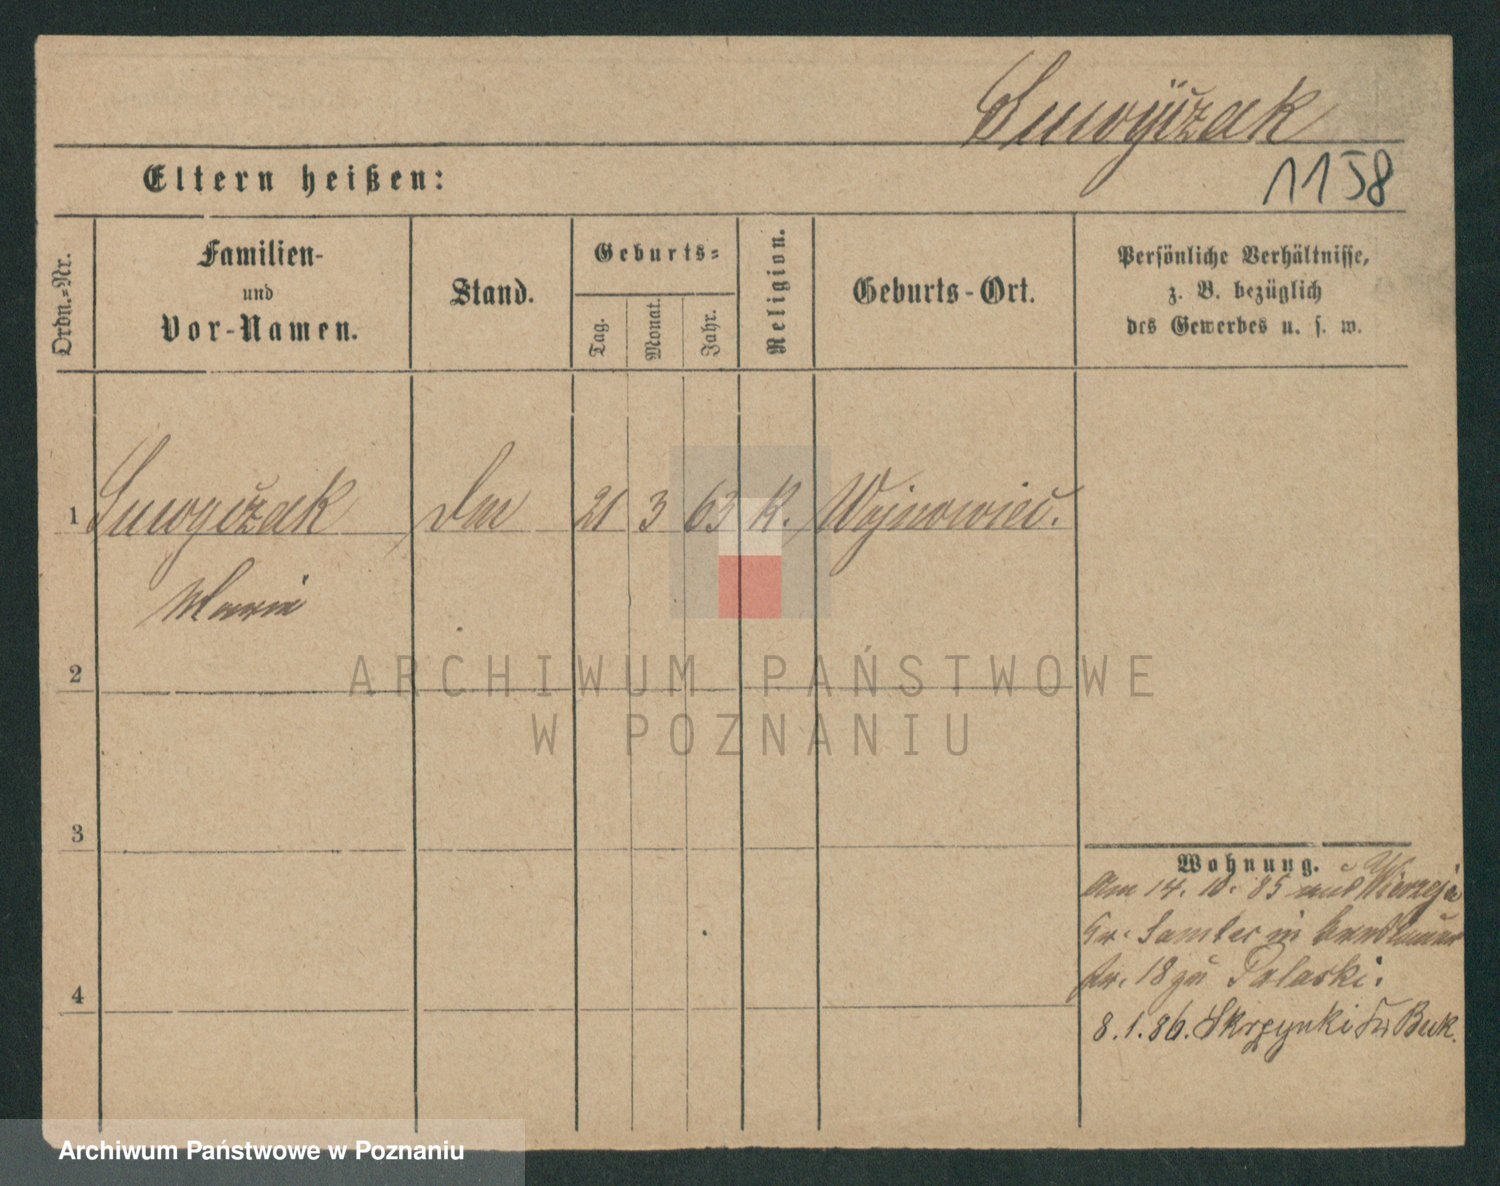 Smoyczak
1158
Eltern heißen:
Ordn.-Nr.
Familien-
und
Vor-Namen.
Stand.
Geburts-
Tag.
Monat.
Jahr.
Religion.
Geburts-Ort.
Persönliche Verhältnisse,
z. B. bezüglich
des Gewerbes u. s. w.
1 21 3 63 K. Wojnowice.
Marie
2
3
4
Wohnung.
Am 14. 10. 85 aus Wierzeja
Kr. Samter in
18 zu Polaski.
8.1.86. Skrzynki Kr. Buk.
ARCHIWUM PAŃSTWOWE
W POZNANIU
Archiwum Państwowe w Poznaniu